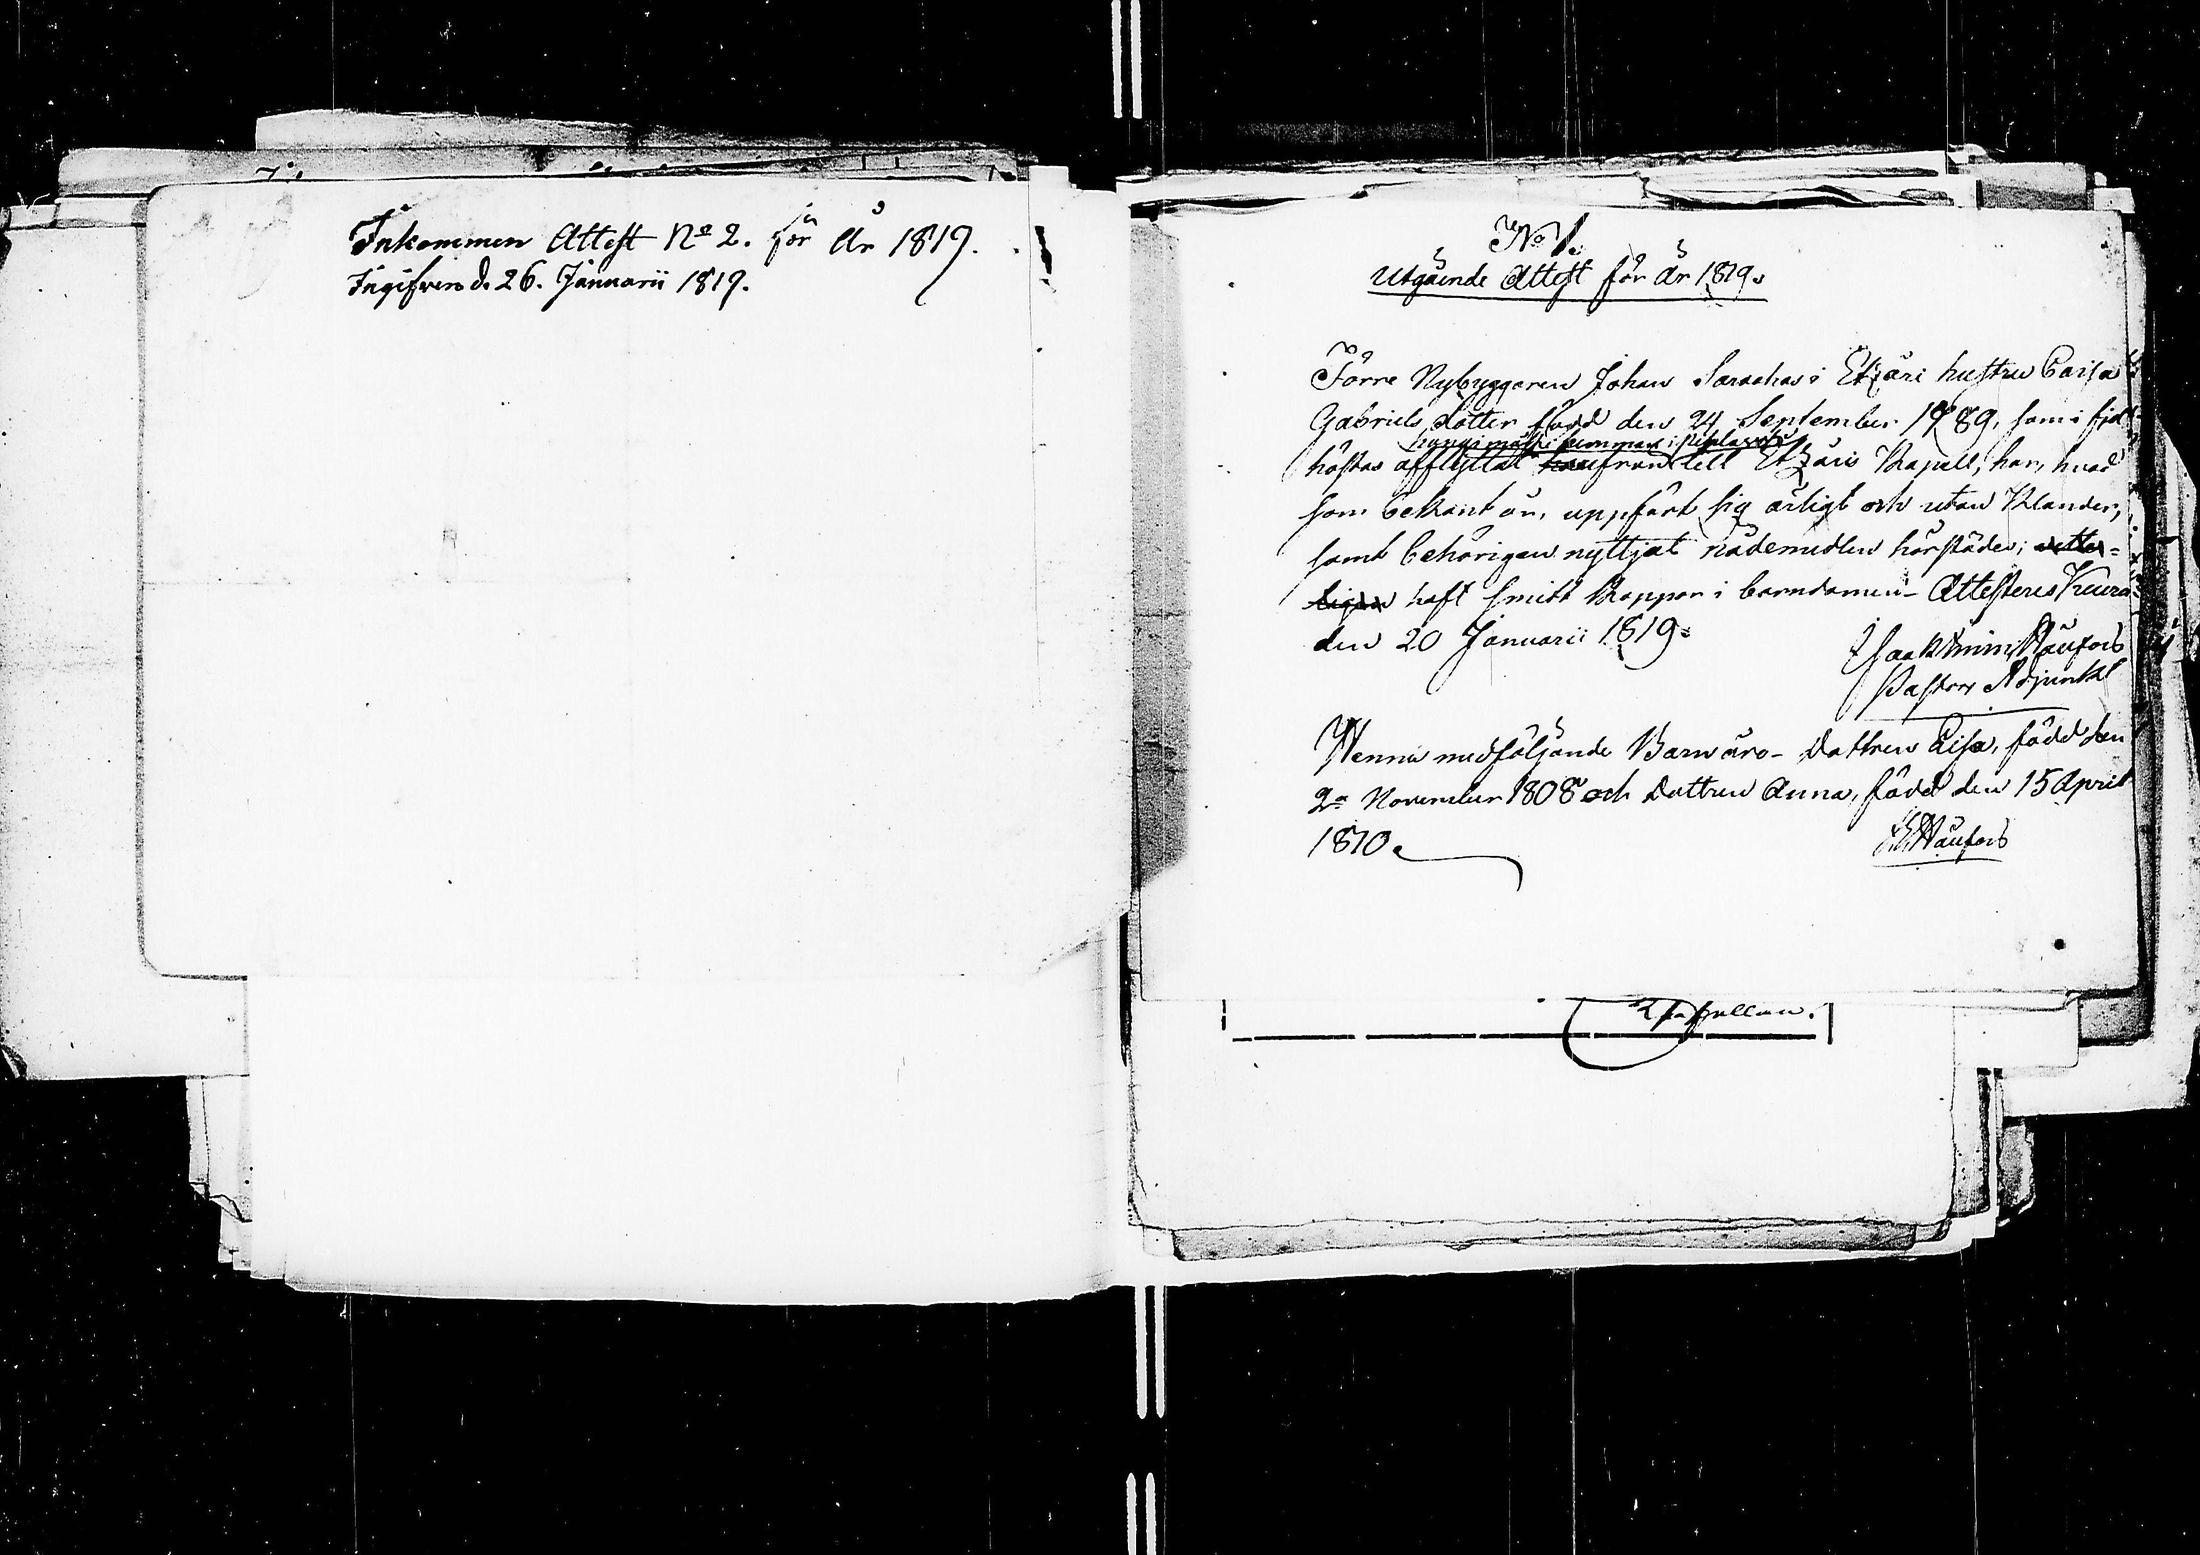 Inkommen Attest No 2. för År 1819.
Ingifven d. 26. Januarii 1819.
No 1.
Utgående Attest för År 1819.
Förre Nybyggaren Johan Sarachas i Etzäri hustru Caisa
Gabriels dotter född den 24 September 1789, som i fjol
höstas afflyttat från till Etzäris Kapell, har, hvad
som bekant är, uppfört sig ärligt och utan Klander,
samt behörigen nyttjat nådemedlen härstädes;
haft smitt Koppor i barndomen. Attesteras
den 20 Januarii 1819.
Isaak
Pastors Adjunkt
Henne medföljande Barn äro - Dottren Lisa, född den
2a November 1808 och Dottren Anna, född den 15 April
1810.